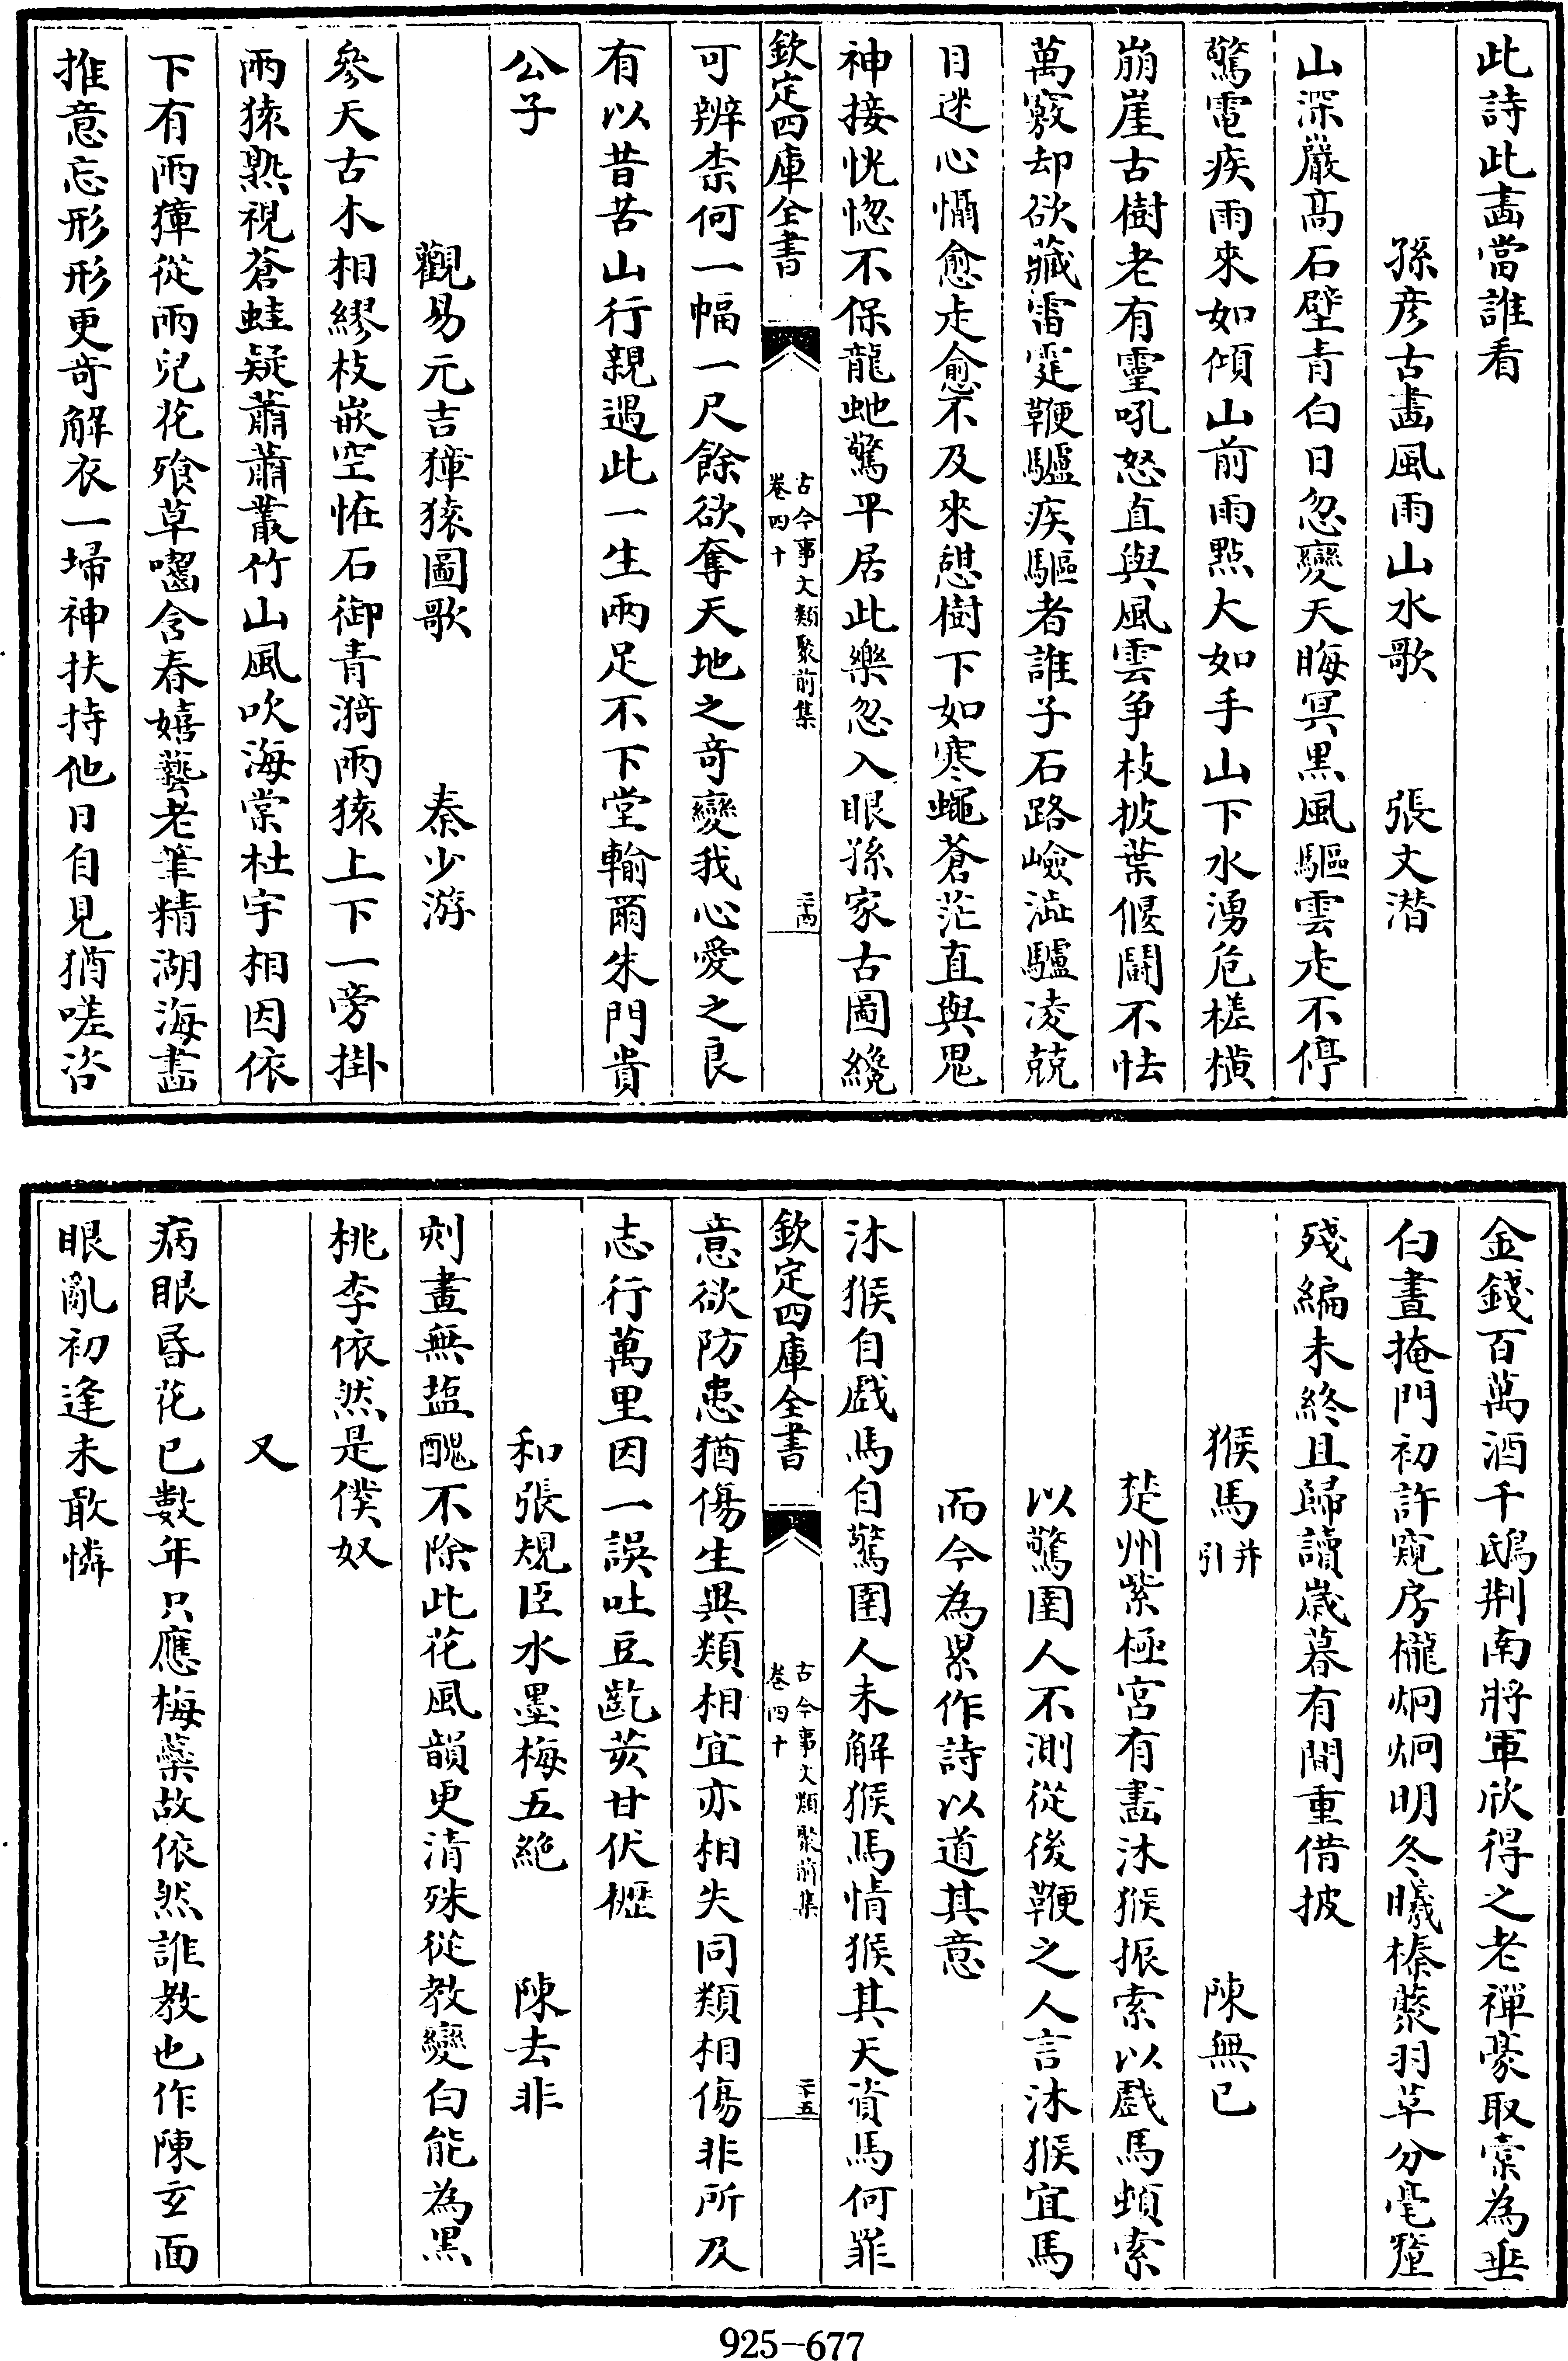 此詩此畵當誰看
孫彦古畵風雨山水歌 張文潛
山深巖髙石壁青白日忽變天晦冥黒風驅雲走不停
驚電疾雨來如傾山前雨㸃大如手山下水湧危槎横
崩崖古樹老有靈吼怒直與風雲爭枝披葉偃鬭不怯
萬竅却欲藏雷霆鞭驢疾驅者誰子石路嶮澁驢凌兢
目迷心慴愈走愈不及來憇樹下如寒蠅蒼茫直與鬼
神接恍惚不保龍虵驚平居此樂忽入眼孫家古圖纔
欽定四庫全書 古今事文類聚前集 卷四十 二十四
可辨柰何一幅一尺餘欲奪天地之竒變我心愛之良
有以昔苦山行親遇此一生兩足不下堂輸爾朱門貴
公子
觀易元吉獐猿圖歌 秦少游
參天古木相繆枝嵌空恠石御青漪兩猿上下一旁掛
兩猿熟視蒼蛙疑蕭蕭叢竹山風吹海棠杜宇相因依
下有兩獐從兩兒花飱草囓含春嬉藝老筆精湖海畵
推意忘形形更竒解衣一埽神扶持他日自見猶嗟咨
金錢百萬酒千鴟荆南將軍欣得之老禪豪取橐為垂
白晝掩門初許窺房櫳炯炯明冬曦榛藂羽草分毫釐
殘編未終且歸讀嵗暮有間重借披
猴馬 并引 陳無已
楚州紫極宫有畵沐猴振索以戲馬頓索
以驚圉人不測從後鞭之人言沐猴宜馬
而今為累作詩以道其意
沐猴自戲馬自驚圉人未解猴馬情猴其天資馬何罪
欽定四庫全書 古今事文類聚前集 卷四十 二十五
意欲防患猶傷生異類相宜亦相失同類相傷非所及
志行萬里因一誤吐豆齕芡甘伏櫪
和張規臣水墨梅五絶 陳去非
刿畫無塩醜不除此花風韻更清殊從教變白能為黒
桃李依然是僕奴
又
病眼昬花已數年只應梅蘂故依然誰教也作陳玄面
眼亂初逢未敢憐
925-677